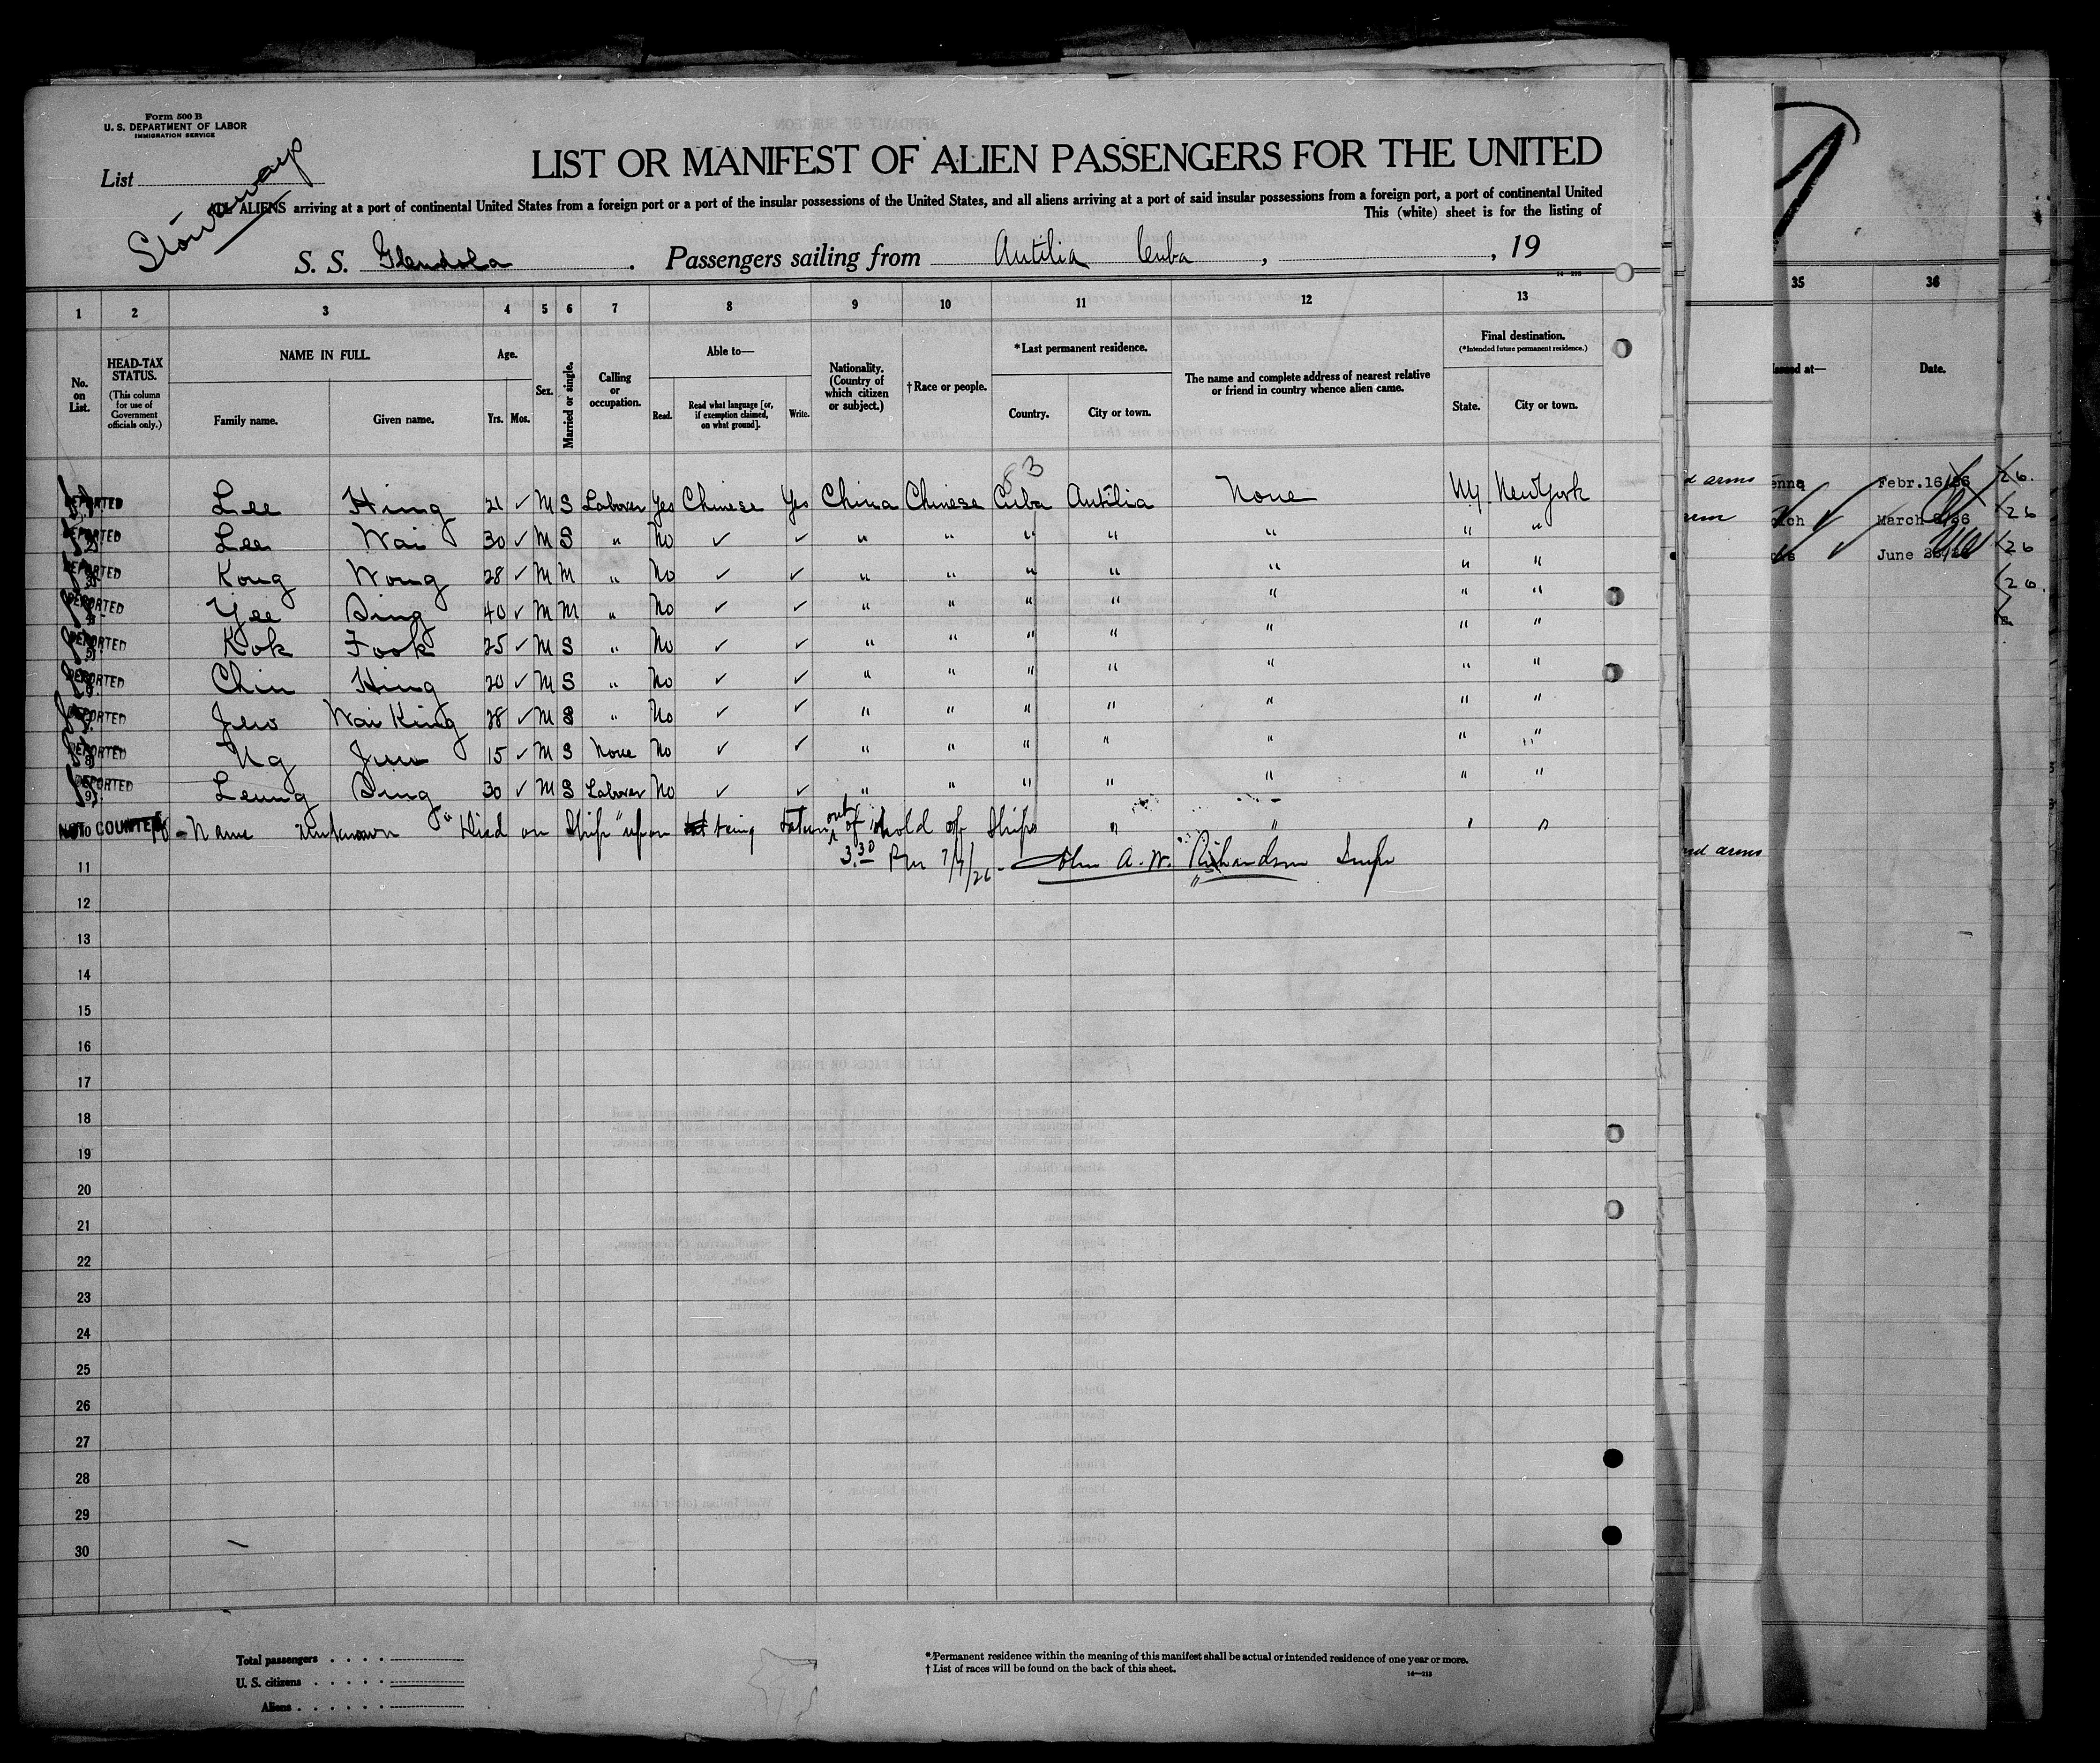 Form 500 B
U. S. DEPARTMENT OF LABOR
IMMIGRATION SERVICE
List
Stowaways
LIST OR MANIFEST OF ALIEN PASSENGERS FOR THE UNITED
ALL ALIENS arriving at a port of continental United States from a foreign port or a port of the insular possessions of the United States, and all aliens arriving at a port of said insular possessions from a foreign port, a port of continental United
This (white) sheet is for the listing of
S. S. Glendola. Passengers sailing from Antilia Cuba, , 19
1 2 3 4 5 6 7 8 9 10 11 12 13
No. on List.
HEAD-TAX STATUS.
(This column for use of Government officials only.)
NAME IN FULL.
Family name. Given name.
Age.
Yrs. Mos.
Sex.
Married or single.
Calling or occupation.
Able to—
Read. Read what language [or, if exemption claimed, on what ground]. Write.
Nationality. (Country of which citizen or subject.)
† Race or people.
*Last permanent residence.
Country. City or town.
The name and complete address of nearest relative or friend in country whence alien came.
Final destination.
(*Intended future permanent residence.)
State. City or town.
83
DEPORTED Lee Hing 21 ✓ M S Laborer Yes Chinese Yes China Chinese Cuba Antilia None NY. New York
DEPORTED 2 Lee Wai 30 ✓ M S " No ✓ ✓ " " " " " " "
DEPORTED 3 Kong Wong 28 ✓ M M " No ✓ ✓ " " " " " " "
DEPORTED 4 Yee Sing 40 ✓ M M " No ✓ ✓ " " " " " " "
DEPORTED 5 Kok Fook 25 ✓ M S " No ✓ ✓ " " " " " " "
DEPORTED 6 Chin Hing 20 ✓ M S " No ✓ ✓ " " " " " " "
DEPORTED 7 Jew Wai King 28 ✓ M S " No ✓ ✓ " " " " " " "
DEPORTED 8 Ng Jew 15 ✓ M S None No ✓ ✓ " " " " " " "
DEPORTED 9 Leung Sing 30 ✓ M S Laborer No ✓ ✓ " " " " " " "
NOT COUNTED 10 - Name unknown "Died on Ship" upon being taken out of hold of Ship " " " "
11 3.30 Pm 7/7/26 - John A. W. Richardson Insp
12
13
14
15
16
17
18
19
20
21
22
23
24
25
26
27
28
29
30
Total passengers
U. S. citizens
Aliens
* Permanent residence within the meaning of this manifest shall be actual or intended residence of one year or more.
† List of races will be found on the back of this sheet.
14—213
35 36
Issued at— Date.
arms Febr.16/26 26.
March 26
June 26
26.
arms